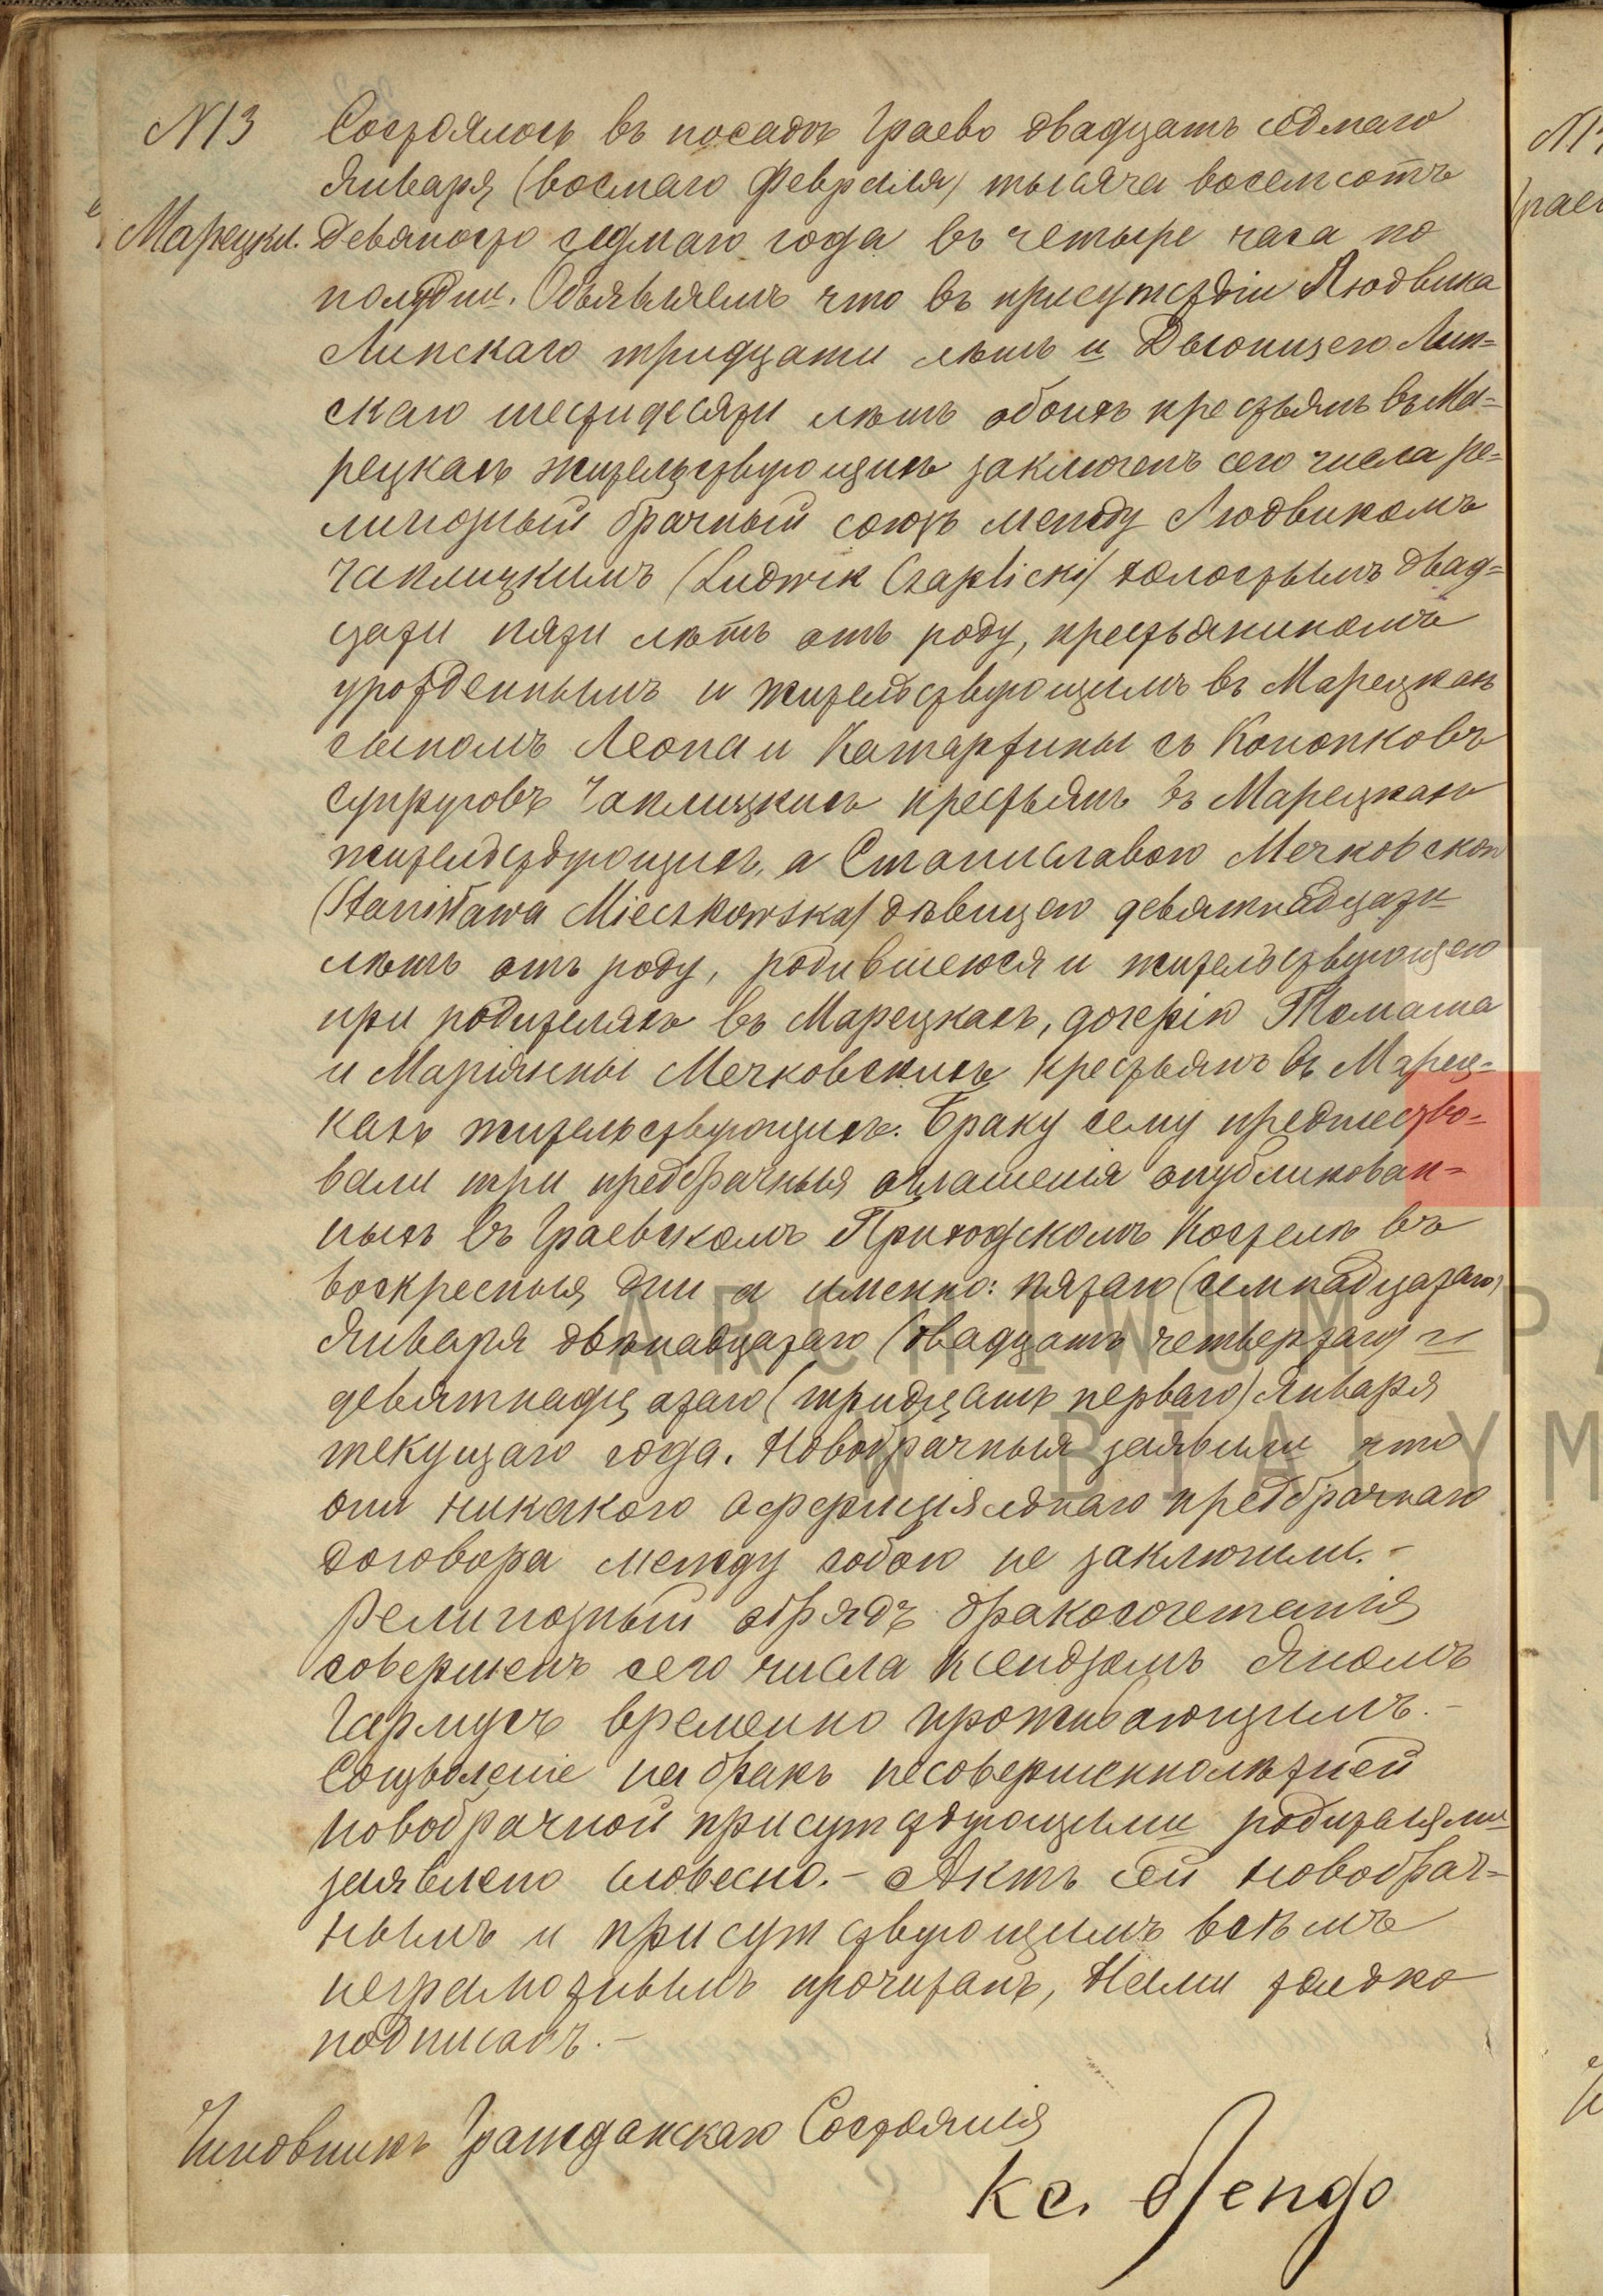 N 13
Марецки.
Состоялось въ посадѣ Граево двадцать седмаго
Января (восмаго Февраля) тысяча восемсотъ
Девяносто седмаго года въ четыре часа по
полудни. Объявляемъ что въ присутствіи Людвика
Липскаго тридцати лѣтъ и Дыонизего Лип=
скаго шестидесяти лѣтъ обоихъ крестьянъ въ Ма=
рецкахъ жительствующихъ заключенъ сего числа ре=
лигіозный брачный союзъ между Людвикомъ
Чаплицкимъ (Ludwik Czaplicki) холостымъ двад=
цати пяти лѣтъ отъ роду, крестьяниномъ
урожденнымъ и жительствующимъ въ Марецкахъ
сыномъ Леона и Катаржины съ Конопковъ
супруговъ Чаплицкихъ крестьянъ въ Марецкахъ
жительствующихъ, а Станиславою Мечковскою
(Stanisława Mieczkowska) дѣвицею девятнадцати
лѣтъ отъ роду, родившеюся и жительствующею
при родителяхъ въ Марецкахъ, дочерію Томаша
и Маріянны Мечковскихъ крестьянъ въ Марец=
кахъ жительствующихъ. Браку сему предшество=
вали три предбрачныя оглашенія опубликован=
ныхъ въ Граевскомъ Приходскомъ Костелѣ въ
воскресныя дни а именно: пятаго (семнадцатаго)
Января двѣнадцатаго (двадцать четвертаго) и
девятнадцатаго (тридцать перваго) Января
текущаго года. Новобрачныя заявили что
они никакого оффиціяльнаго предбрачнаго
договора между собою не заключили. -
Религіозный обрядъ бракосочетанія
совершенъ сего числа ксендзомъ Яномъ
Гармусъ временно проживающимъ. -
Соизволеніе на бракъ несовершеннолѣтней
новобрачной присутствующими родителями
заявлено словесно. - Актъ сей новобрач=
нымъ и присутствующимъ всѣмъ
неграмотнымъ прочитанъ, Нами только
подписанъ. -
Чиновникъ Гражданскаго Состоянія
Кс.
ARCHIWUM PA
W BIAŁYM
N 1